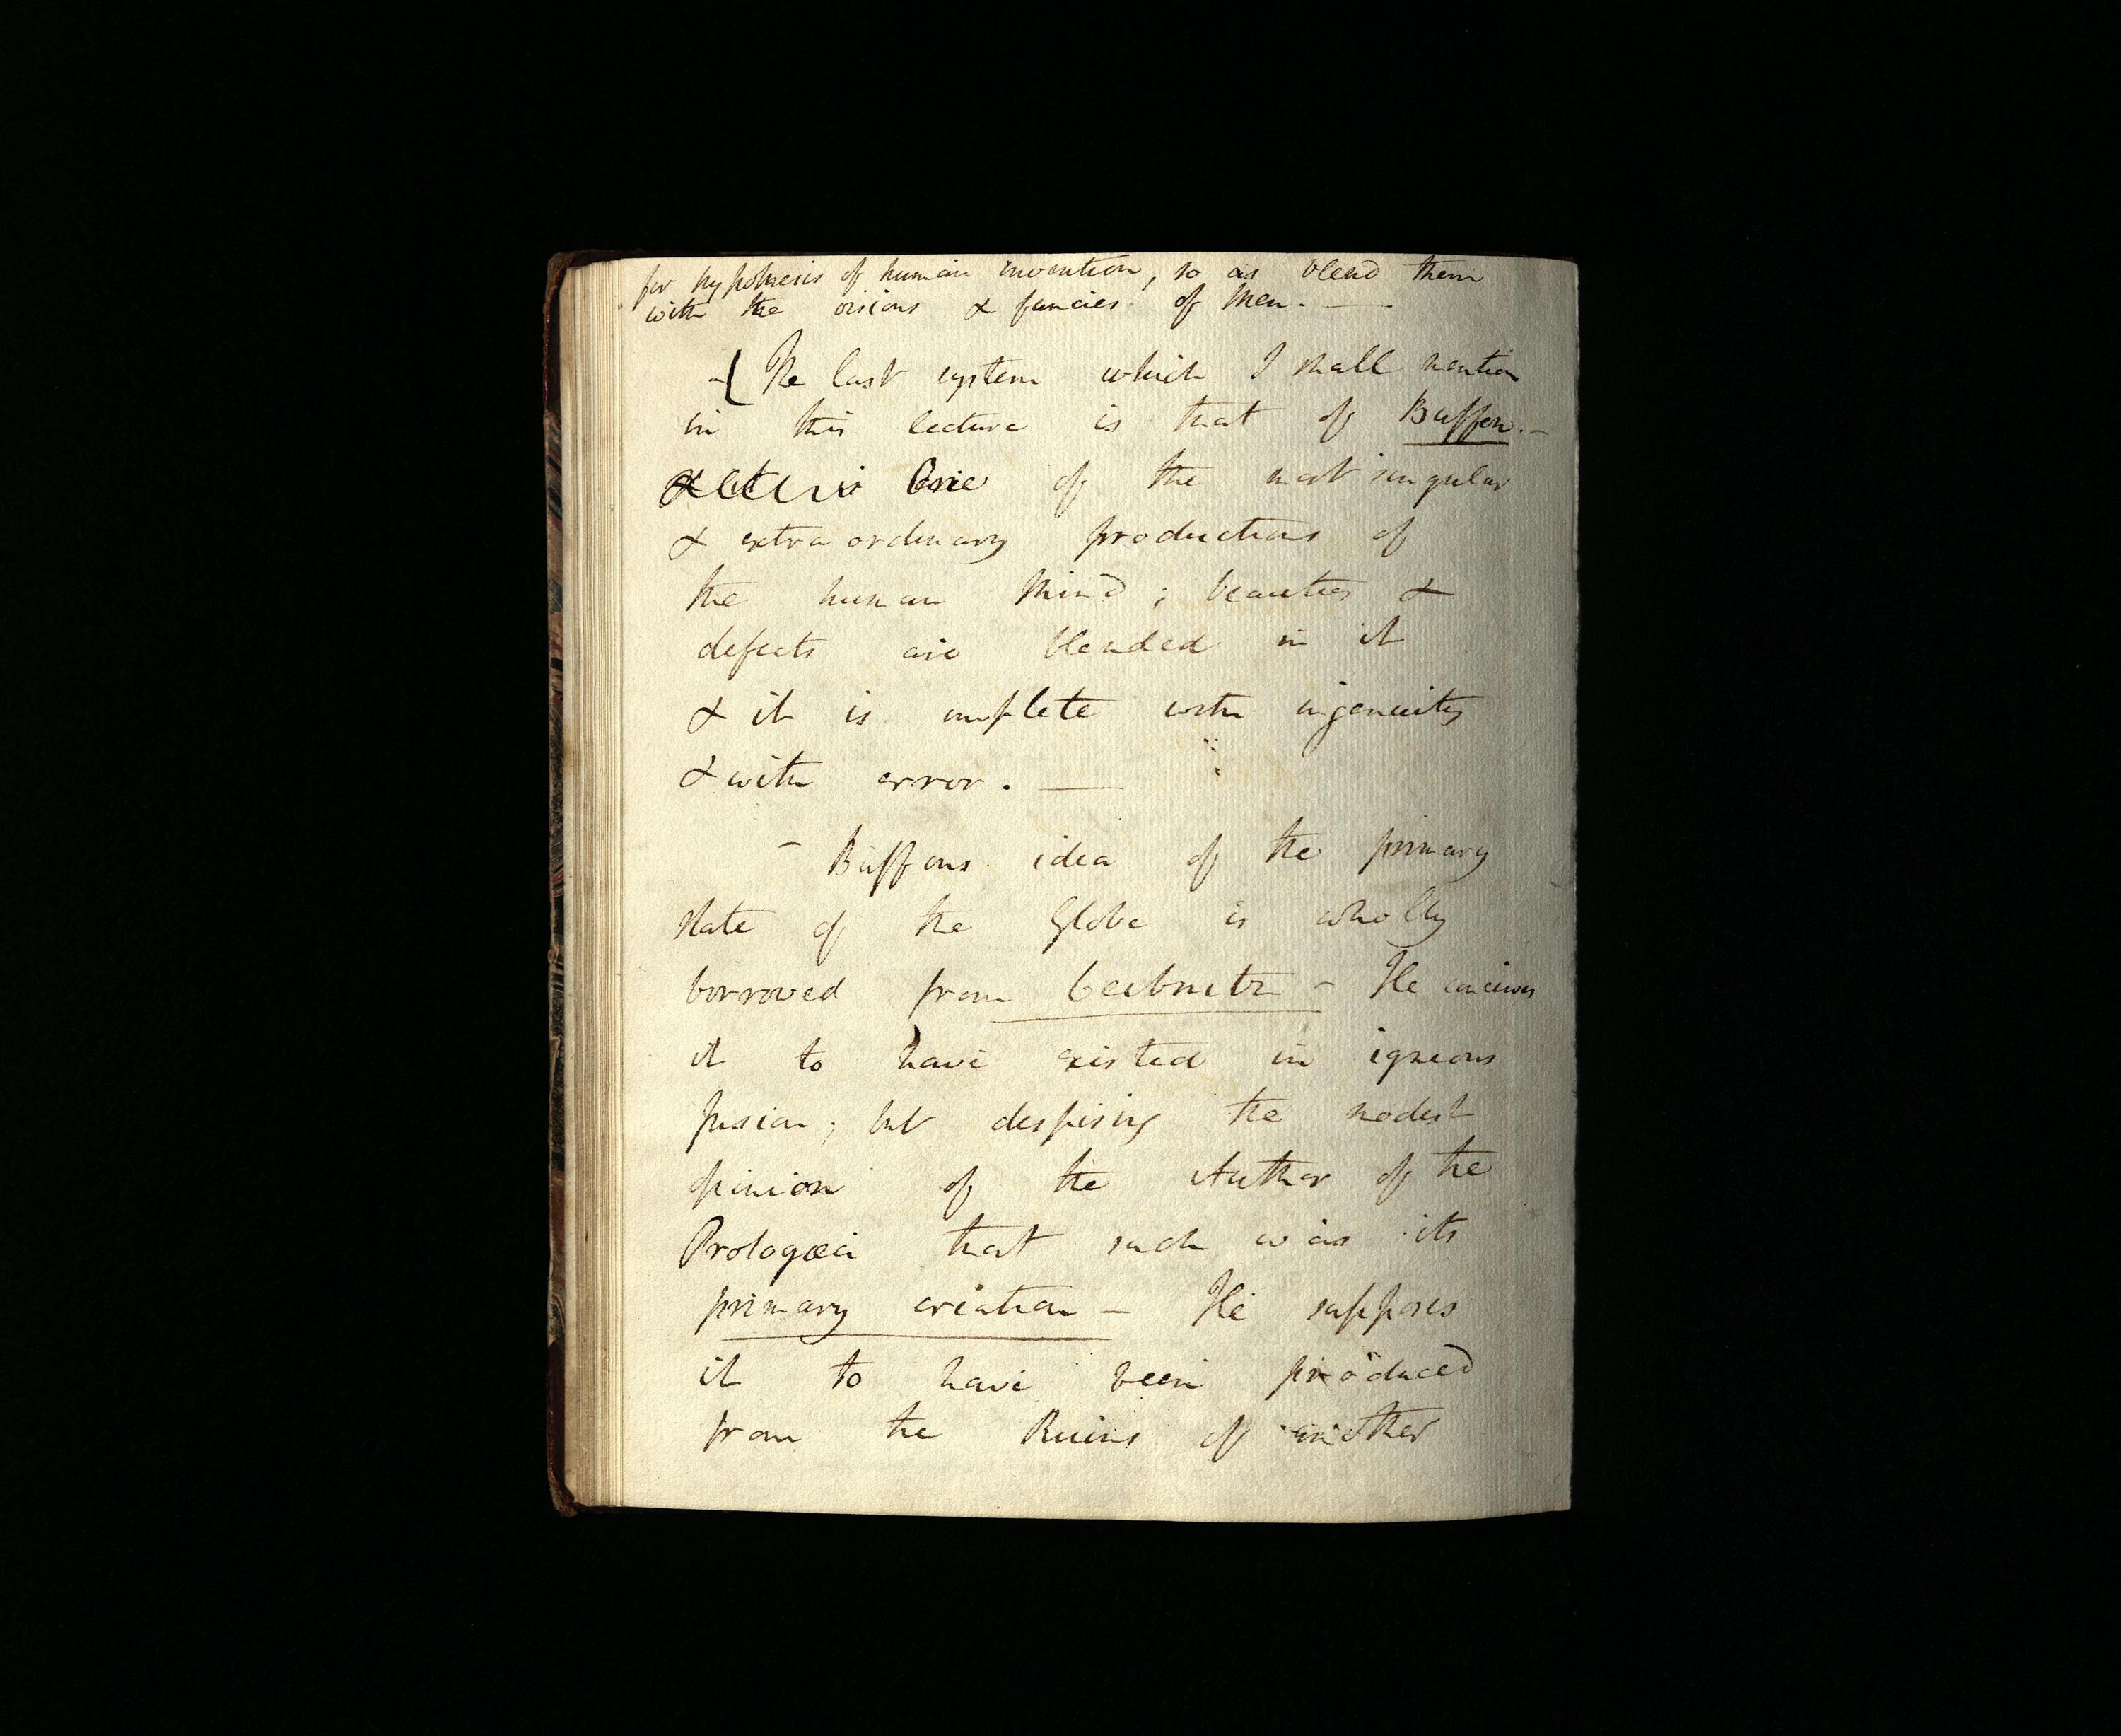 for hypothesis of human invention, so as blend them
with the visions & fancies of Men. —
– { The last system which I shall mention
in this lecture is that of Buffon. –
It is One of the most singular
& extraordinary productions of
the human Mind; beauties &
defects are blended in it
& it is replete with ingenuity
& with error. —
– Buffons idea of the primary
state of the Globe is wholly
borrowed from Leibnitz – He conceives
it to have existed in igneous
fusion; but despising the modest
opinion of the Author of the
Protogæa that such was its
primary creation – He supposes
it to have been produced
from the Ruins of another